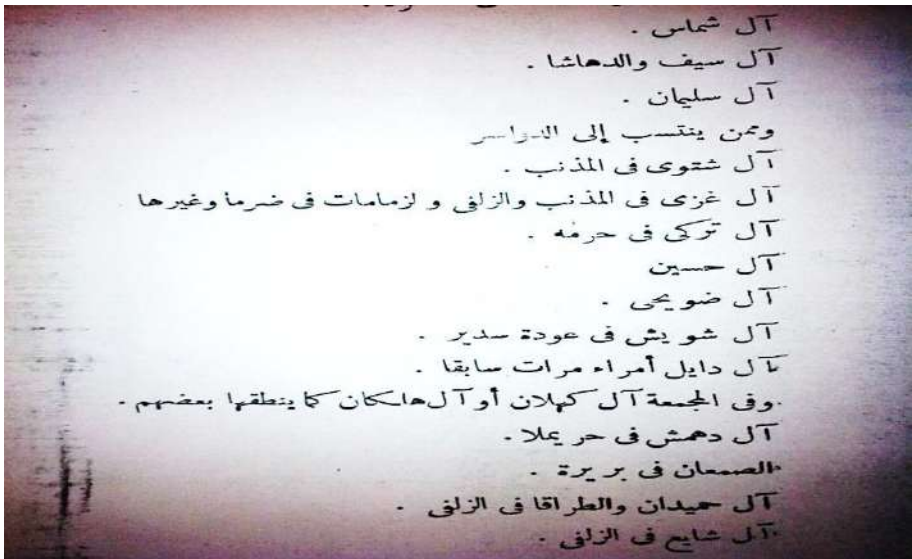 آل شماس .
آل سيف والدهاشا .
آل سليمان .
وممن ينتسب إلى الدواسر
آل شتوى فى المذنب .
آل غزى فى المذنب والزلفى و لزمامات فى ضرما وغيرها
آل تركى فى حرمه .
آل حسين
آل ضويحى .
آل شويش فى عودة سدير .
آل دايل أمراء مرات سابقا .
وفى المجمعة آل كهلان أو آل هلكان كما ينطقها بعضهم .
آل دهمش فى حريملا .
الصمعان فى بريرة .
آل حميدان والطراقا فى الزلفى .
آل شايع فى الزلفى .